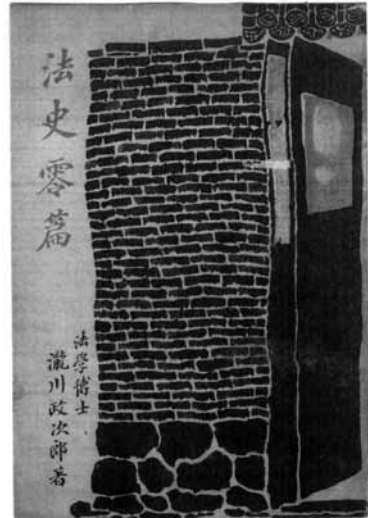 法史零篇
法學博士
瀧川政次郎著